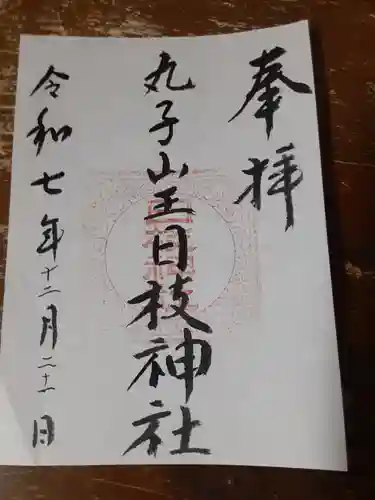 奉拝
丸子山王日枝神社
令和七年十二月二十一日